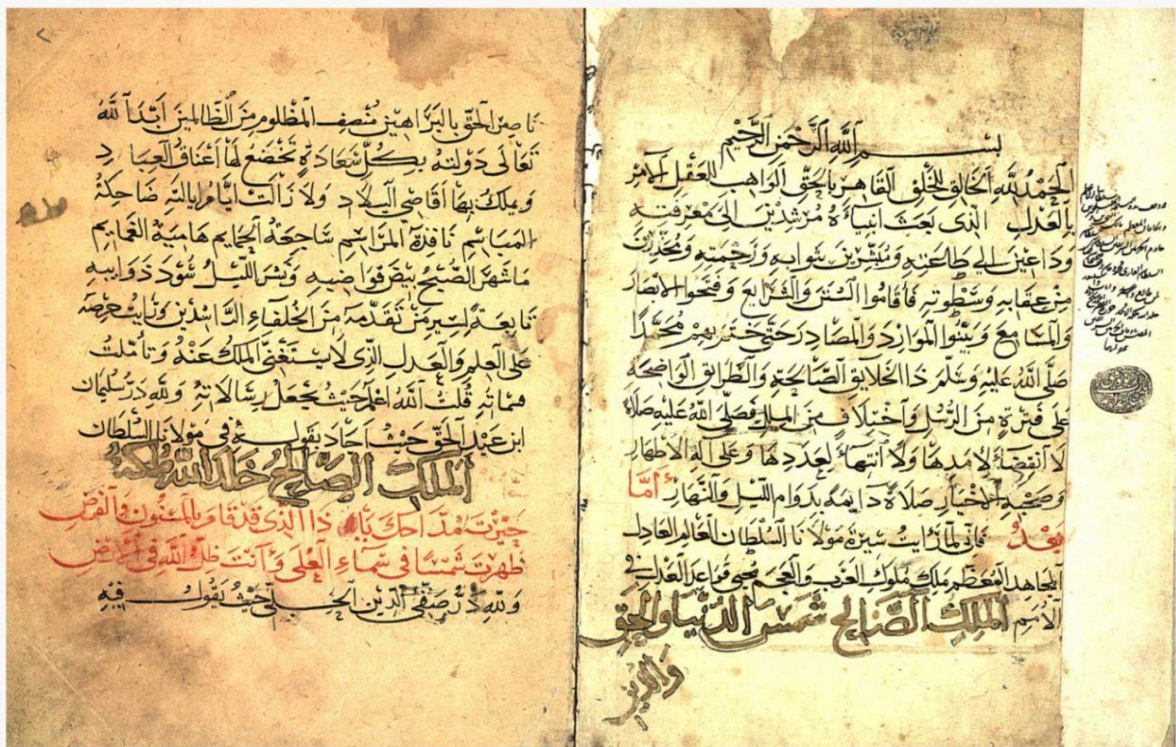 بسم الله الرحمن الرحيم
الحمد لله الخالق للخلق القاهر بالحق الواهب للعقل الآمر
بالعدل الذي بعث انبياءه مرشدين الى معرفته
وداعين الى طاعته ومبشرين بثوابه ورحمته ومحذرين
من عقابه وسطوته فأقاموا السنن والشرايع وفتحوا الابصار
والمسامع وبينوا الموارد والمصادر حتى ختم بهم محمدا
صلى الله عليه وسلم ذا الخلايق الصالحة والطرايق الواضحة
على فترة من الرسل واختلاف من الملل فصلى الله عليه صلاة
لا انقضاء لامدها ولا انتهاء لعددها وعلى آله الاطهار
وصحبه الاخيار صلاة دايمة بدوام الليل والنهار أما
بعد فاني لما رايت سيرة مولانا السلطان العالم العادل
المجاهد المعظم ملك ملوك العرب والعجم محيي قواعد العدل في
الامم الملك الصالح شمس الدنيا والحق
والدين
ناصر الحق بالبراهين منصف المظلوم من الظالمين أبد الله
تعالى دولته بكل سعادة تخضع لها أعناق العباد
ويملك بها أقاصي البلاد ولا زالت ايام ايالته ضاحكة
المباسم نافذة المراسم ساجعة الحمايم هامية الغمايم
ما شهر الصبح بيض قواضبه ونشر الليل سود ذوايبه
تابعة لسير من تقدمه من الخلفاء الراشدين
على العلم والعدل الذي لا يستغنى الملك عنه وتأملت
قلت الله اعلم حيث يجعل رسالاته ولله در سليمان
ابن عبد الحق حيث اجاد بقوله في مولانا السلطان
الملك الصالح خلد الله ملكه
ذا الذي قد قام بالمسنون والفرض
ظهرت شمسا في سماء العلى وأنت ظل الله في الأرض
ولله در صفي الدين الحلي حيث يقول فيه